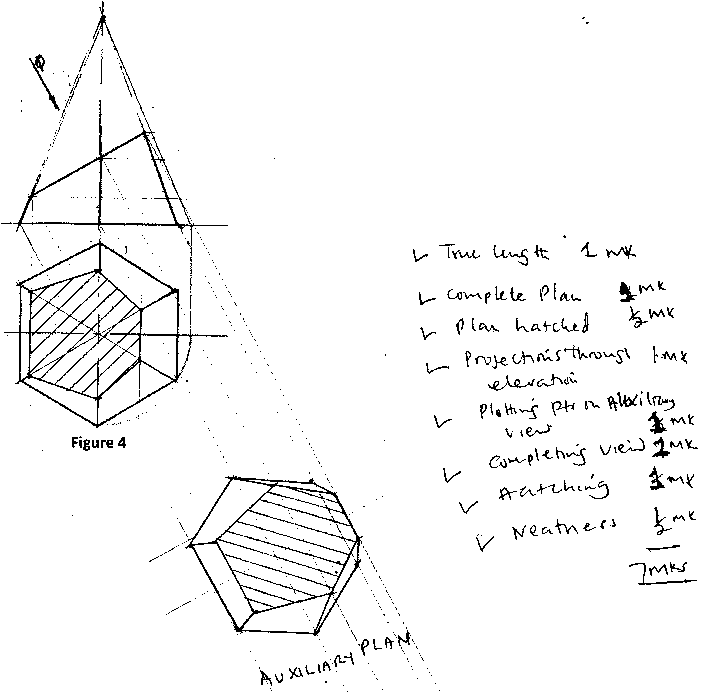 Figure 4
AUXILIARY PLAN
True length 1 mk
Complete Plan 1 mk
Plan hatched ½ mk
Projections through 1 mk
elevation
Plotting ptr on Auxiliary
view 1 mk
Completing view 1 mk
Hatching 1 mk
Neatness ½ mk
7 mks